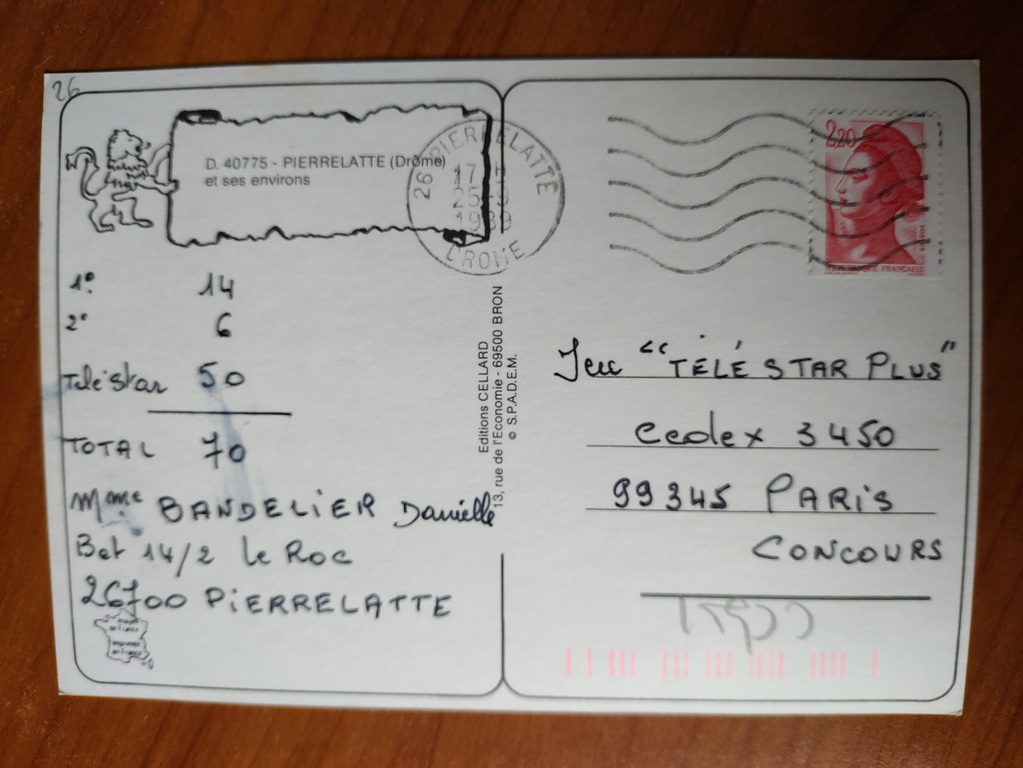 26
D. 40775 - PIERRELATTE (Drôme)
et ses environs
26 PIERRELATTE
17 H
25 - 9
1989
DROME
2,20
POSTES
REPUBLIQUE FRANÇAISE
1° 14
2° 6
Téléstar 50
TOTAL 70
Mme BANDELIER Danielle
Bat 14/2 Le Roc
26700 PIERRELATTE
images
de France
imprimées
en France
Editions CELLARD
13, rue de l'Economie - 69500 BRON
© S.P.A.D.E.M.
Jeu "TÉLÉ STAR PLUS"
Cedex 3450
99345 PARIS
CONCOURS